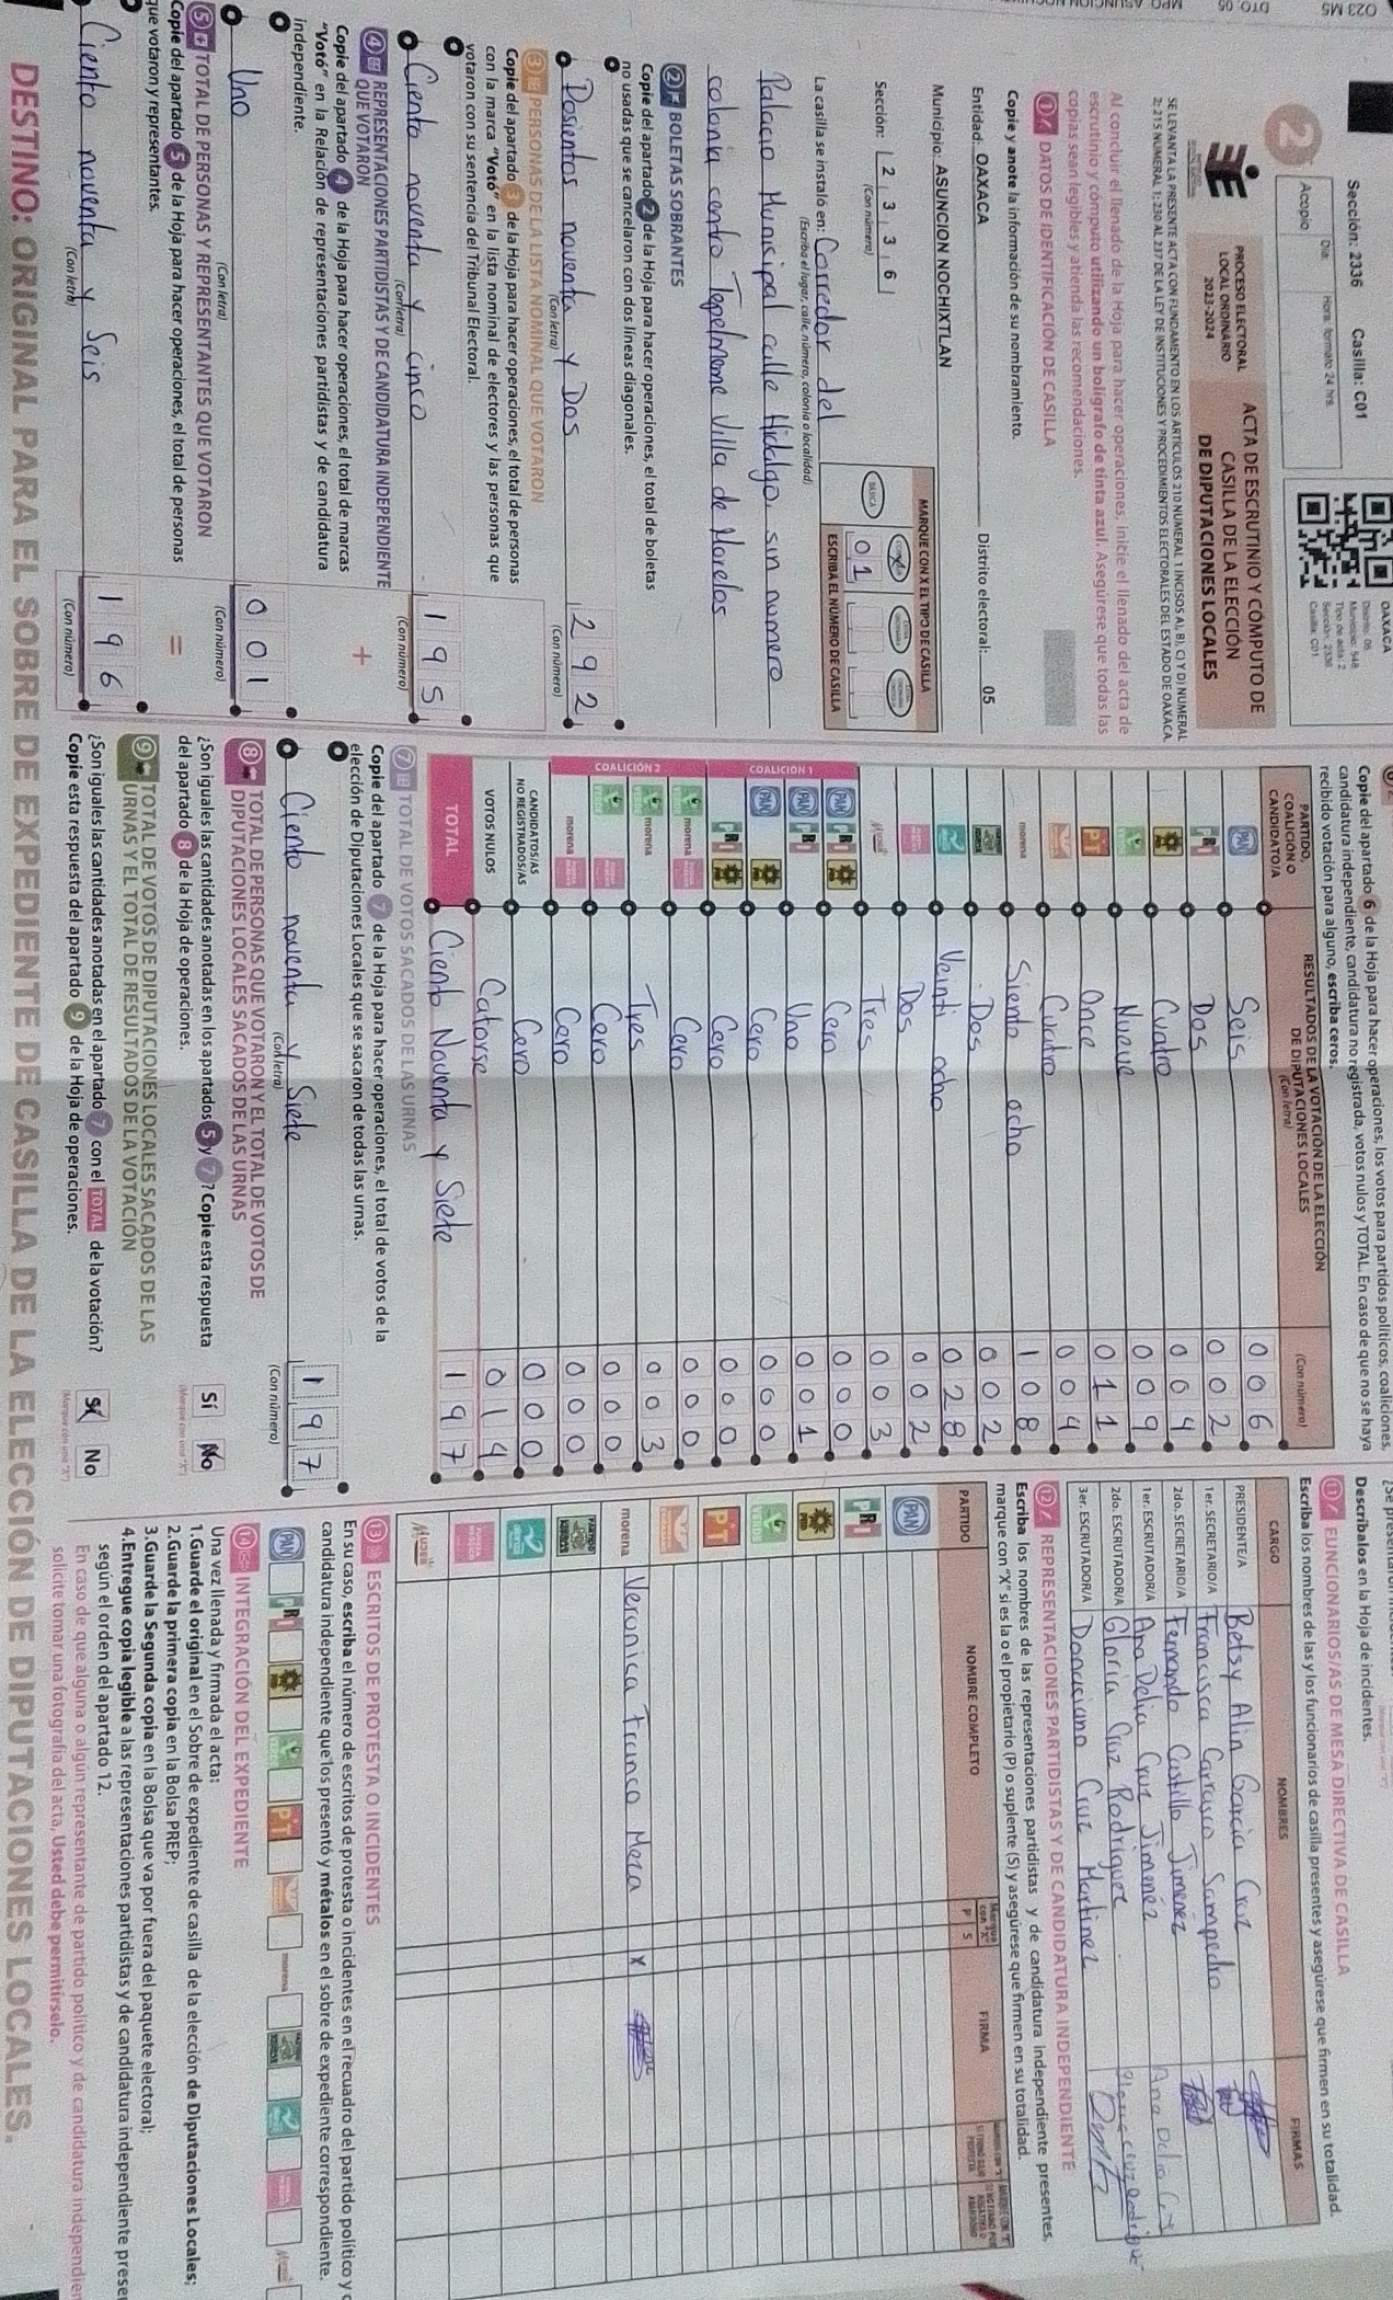 O23 M5
DTO 05
Sección: 2336 Casilla: C01
OAXACA
Distrito: 05
Municipio: 548
Tipo de acta: 2
Sección: 2336
Casilla: C01
2
Acopio
Día:
Hora: formato 24 hrs.
PROCESO ELECTORAL
LOCAL ORDINARIO
2023-2024
ACTA DE ESCRUTINIO Y CÓMPUTO DE
CASILLA DE LA ELECCIÓN
DE DIPUTACIONES LOCALES
SE LEVANTA LA PRESENTE ACTA CON FUNDAMENTO EN LOS ARTÍCULOS 210 NUMERAL 1 INCISOS A), B), C) Y D) NUMERAL
2; 215 NUMERAL 1; 230 AL 237 DE LA LEY DE INSTITUCIONES Y PROCEDIMIENTOS ELECTORALES DEL ESTADO DE OAXACA.
Al concluir el llenado de la Hoja para hacer operaciones, inicie el llenado del acta de
escrutinio y cómputo utilizando un bolígrafo de tinta azul. Asegúrese que todas las
copias sean legibles y atienda las recomendaciones.
1 DATOS DE IDENTIFICACIÓN DE CASILLA
Copie y anote la información de su nombramiento.
Entidad: OAXACA Distrito electoral: 05
Municipio: ASUNCION NOCHIXTLAN
Sección: 2 3 3 6
(Con número)
MARQUE CON X EL TIPO DE CASILLA
BÁSICA
X
ESCRIBA EL NÚMERO DE CASILLA
0 1
La casilla se instaló en: Corredor del
(Escriba el lugar, calle, número, colonia o localidad)
Palacio Munisipal calle Hidalgo, sin numero
colonia centro Tepelmeme Villa de Morelos
2 BOLETAS SOBRANTES
Copie del apartado 2 de la Hoja para hacer operaciones, el total de boletas
no usadas que se cancelaron con dos líneas diagonales.
Dosientos noventa y Dos 2 9 2
(Con letra) (Con número)
3 PERSONAS DE LA LISTA NOMINAL QUE VOTARON
Copie del apartado 3 de la Hoja para hacer operaciones, el total de personas
con la marca "Votó" en la lista nominal de electores y las personas que
votaron con su sentencia del Tribunal Electoral.
Ciento noventa y cinco 1 9 5
(Con letra) (Con número)
4 REPRESENTACIONES PARTIDISTAS Y DE CANDIDATURA INDEPENDIENTE
QUE VOTARON
Copie del apartado 4 de la Hoja para hacer operaciones, el total de marcas
"Votó" en la Relación de representaciones partidistas y de candidatura
independiente.
+
Uno 0 0 1
(Con letra) (Con número)
5 TOTAL DE PERSONAS Y REPRESENTANTES QUE VOTARON
Copie del apartado 5 de la Hoja para hacer operaciones, el total de personas
que votaron y representantes.
=
Ciento noventa y Seis 1 9 6
(Con letra) (Con número)
Copie del apartado 6 de la Hoja para hacer operaciones, los votos para partidos políticos, coaliciones,
candidatura independiente, candidatura no registrada, votos nulos y TOTAL. En caso de que no se haya
recibido votación para alguno, escriba ceros.
PARTIDO,
COALICIÓN O
CANDIDATO/A
RESULTADOS DE LA VOTACIÓN DE LA ELECCIÓN
DE DIPUTACIONES LOCALES
(Con letra)
(Con número)
PAN Seis 0 0 6
PRI Dos 0 0 2
PRD Cuatro 0 0 4
VERDE Nueve 0 0 9
PT Once 0 1 1
Cuatro 0 0 4
morena Siento ocho 1 0 8
Dos 0 0 2
Veinti ocho 0 2 8
Dos 0 0 2
Mujer Tres 0 0 3
COALICIÓN 1
PAN PRI PRD Cero 0 0 0
PAN PRI Uno 0 0 1
PAN PRD Cero 0 0 0
PRI PRD Cero 0 0 0
COALICIÓN 2
VERDE morena Cero 0 0 0
VERDE morena Tres 0 0 3
VERDE Cero 0 0 0
morena Cero 0 0 0
CANDIDATOS/AS
NO REGISTRADOS/AS Cero 0 0 0
VOTOS NULOS Catorse 0 1 4
TOTAL Ciento Noventa y Siete 1 9 7
7 TOTAL DE VOTOS SACADOS DE LAS URNAS
Copie del apartado 7 de la Hoja para hacer operaciones, el total de votos de la
elección de Diputaciones Locales que se sacaron de todas las urnas.
Ciento noventa y Siete 1 9 7
(Con letra) (Con número)
8 TOTAL DE PERSONAS QUE VOTARON Y EL TOTAL DE VOTOS DE
DIPUTACIONES LOCALES SACADOS DE LAS URNAS
¿Son iguales las cantidades anotadas en los apartados 5 y 7? Copie esta respuesta
del apartado 8 de la Hoja de operaciones.
Sí No
(Marque con una "X")
9 TOTAL DE VOTOS DE DIPUTACIONES LOCALES SACADOS DE LAS
URNAS Y EL TOTAL DE RESULTADOS DE LA VOTACIÓN
¿Son iguales las cantidades anotadas en el apartado 7 con el TOTAL de la votación?
Copie esta respuesta del apartado 9 de la Hoja de operaciones.
Sí No
(Marque con una "X")
Descríbalos en la Hoja de incidentes.
11 FUNCIONARIOS/AS DE MESA DIRECTIVA DE CASILLA
Escriba los nombres de las y los funcionarios de casilla presentes y asegúrese que firmen en su totalidad.
CARGO NOMBRES FIRMAS
PRESIDENTE/A Betsy Alin Garcia Cruz
1er. SECRETARIO/A Francisca Carrasco Sampedro
2do. SECRETARIO/A Fernando Castillo Jimenez
1er. ESCRUTADOR/A Ana Delia Cruz Jimenéz
2do. ESCRUTADOR/A Gloria Cruz Rodriguez
3er. ESCRUTADOR/A Donaciano Cruz Martinez
12 REPRESENTACIONES PARTIDISTAS Y DE CANDIDATURA INDEPENDIENTE
Escriba los nombres de las representaciones partidistas y de candidatura independiente presentes,
marque con "X" si es la o el propietario (P) o suplente (S) y asegúrese que firmen en su totalidad.
PARTIDO NOMBRE COMPLETO Marque con "X" P S FIRMA
PAN
PRI
PRD
VERDE
PT
morena Veronica Franco Meza X
Mujer
13 ESCRITOS DE PROTESTA O INCIDENTES
En su caso, escriba el número de escritos de protesta o incidentes en el recuadro del partido político y
candidatura independiente que los presentó y métalos en el sobre de expediente correspondiente.
PAN PRI PRD VERDE PT morena
14 INTEGRACIÓN DEL EXPEDIENTE
Una vez llenada y firmada el acta:
1.Guarde el original en el Sobre de expediente de casilla de la elección de Diputaciones Locales;
2.Guarde la primera copia en la Bolsa PREP;
3.Guarde la Segunda copia en la Bolsa que va por fuera del paquete electoral;
4.Entregue copia legible a las representaciones partidistas y de candidatura independiente
según el orden del apartado 12.
En caso de que alguna o algún representante de partido político y de candidatura
solicite tomar una fotografía del acta, Usted debe permitírselo.
DESTINO: ORIGINAL PARA EL SOBRE DE EXPEDIENTE DE CASILLA DE LA ELECCIÓN DE DIPUTACIONES LOCALES.